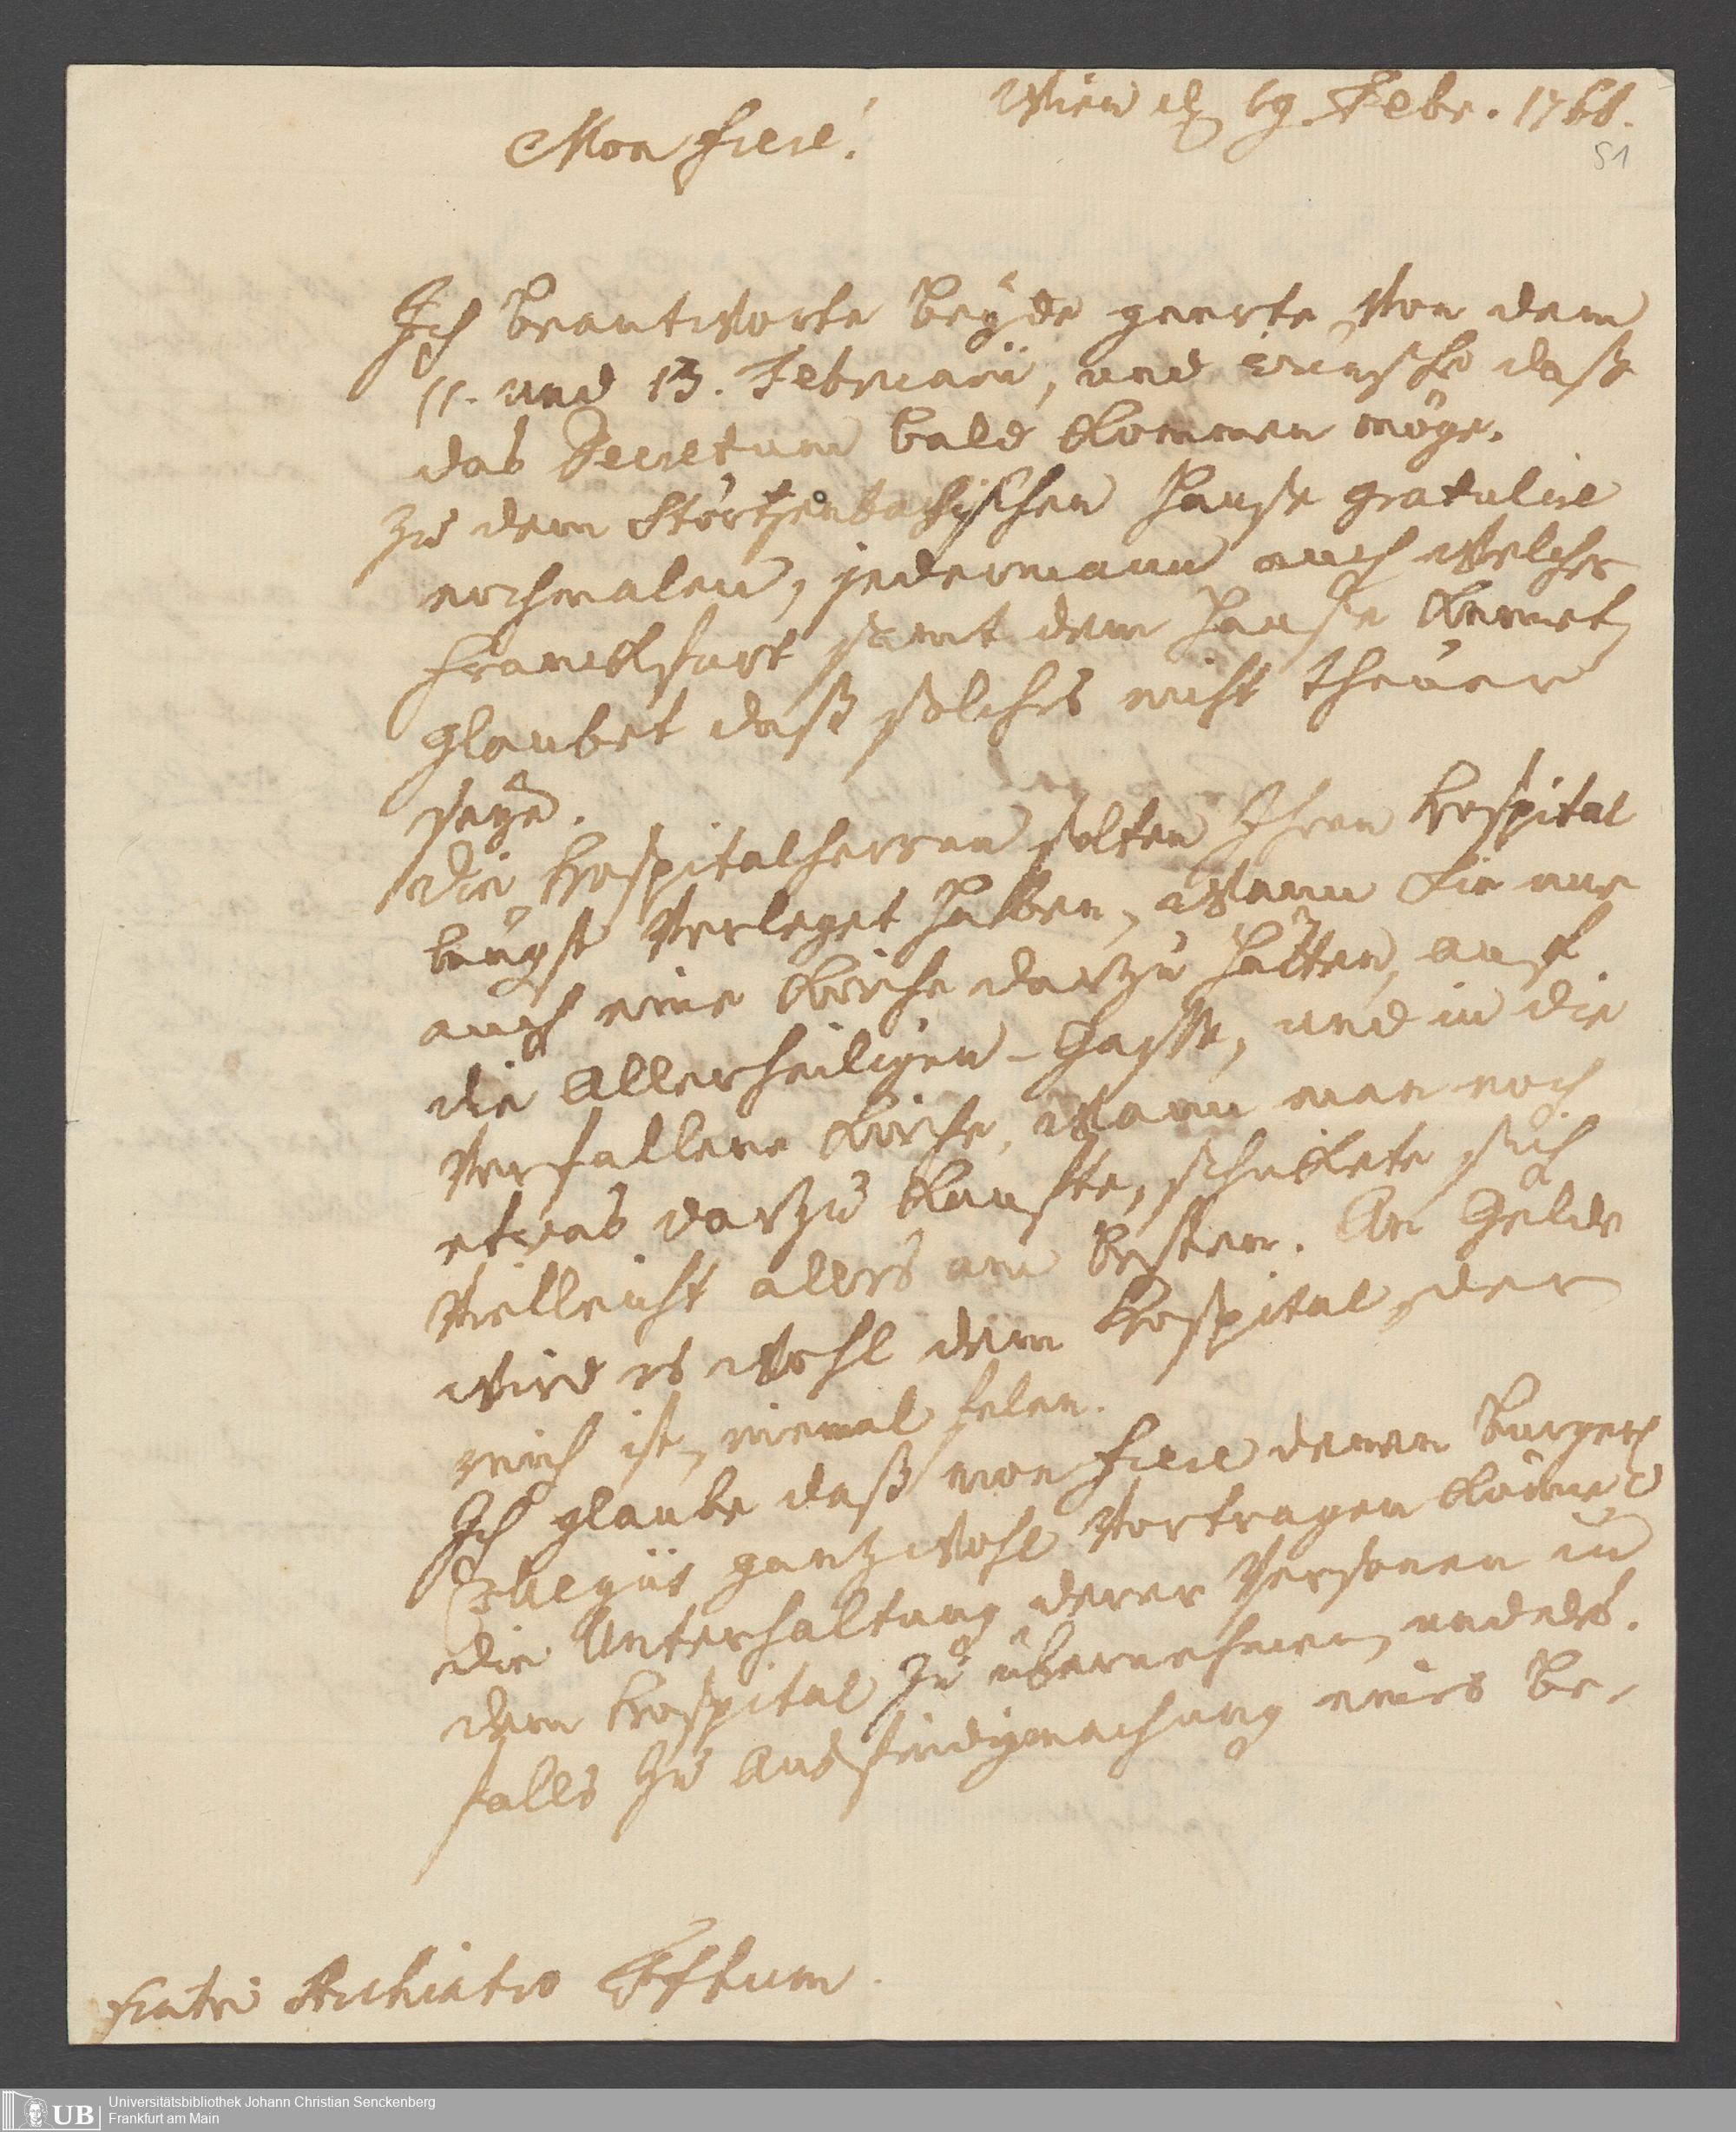 Wien den 19. Febr. 1766.
51
Mon frere!
Ich beantworte beyde geerte von dem
11. und 13. Februarii, und wünsche daß
das Decretum bald kommen möge.
Zu dem Störtzenbachischen Hause gratulire
nochmalen, jedermann auch welcher
Franckfurt samt dem Hause kennet,
glaubet daß solches nicht theuer
seye.
Die Hospitalherren solten Ihren Hospital
längst verleget haben, wann Sie nur
auch eine Kirche darzu hätten, auf
die Allerheiligen-Gasse, und in die
verfallene Kirche, wann man noch
etwas darzu kaufte, schickete sich
vielleicht alles am besten. An Gelde
wird es wohl dem Hospital, der
reich ist, niemal felen.
Ich glaube daß mon frere denen Burger
Collegiis gantz wohl vortragen könne
die Unterhaltung derer Personen in
dem Hospital zu übernehmen, und eben
falls zu Ausfindigmachung eines Be-
fratri Archiatro
Universitätsbibliothek Johann Christian Senckenberg
Frankfurt am Main
UB